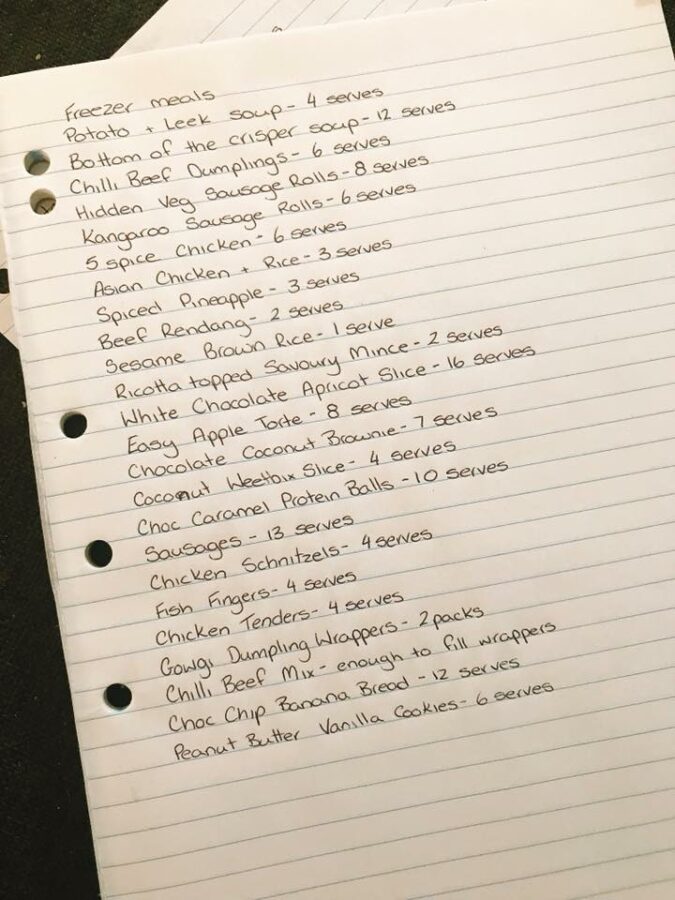 Freezer meals
Potato + Leek soup - 4 serves
Bottom of the crisper soup - 12 serves
Chilli Beef Dumplings - 6 serves
Hidden Veg Sausage Rolls - 8 serves
Kangaroo Sausage Rolls - 6 serves
5 spice Chicken - 6 serves
Asian Chicken + Rice - 3 serves
Spiced Pineapple - 3 serves
Beef Rendang - 2 serves
Sesame Brown Rice - 1 serve
Ricotta topped Savoury Mince - 2 serves
White Chocolate Apricot Slice - 16 serves
Easy Apple Torte - 8 serves
Chocolate Coconut Brownie - 7 serves
Coconut Weetbix Slice - 4 serves
Choc Caramel Protein Balls - 10 serves
Sausages - 13 serves
Chicken Schnitzels - 4 serves
Fish Fingers - 4 serves
Chicken Tenders - 4 serves
Gowgi Dumpling Wrappers - 2 packs
Chilli Beef Mix - enough to fill wrappers
Choc Chip Banana Bread - 12 serves
Peanut Butter Vanilla Cookies - 6 serves